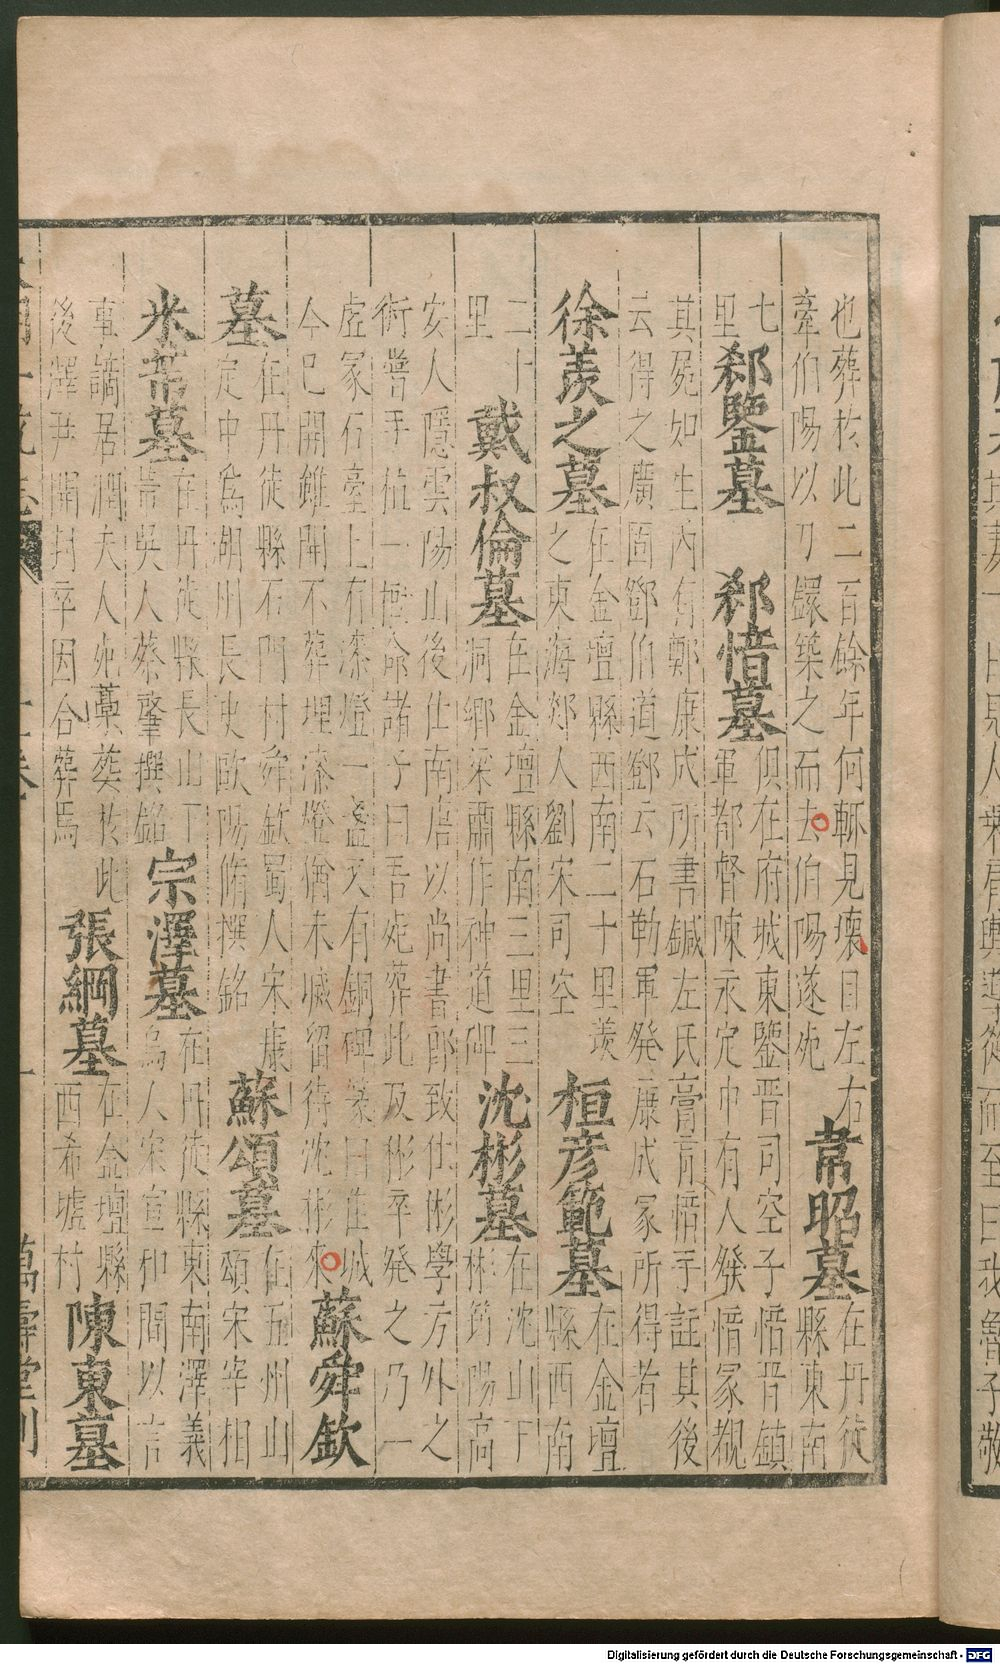 也葬於此二百餘年何輒見壞目左右牽伯陽以刀鐶築之而去伯陽遂死韋昭墓在丹徒縣東南
七里郗鑒墓郗愔墓俱在府城東鑒晉司空子愔晉鎮軍都督陳永定中有人發愔冢覩
其屍如生內有鄭康成所書鍼左氏膏肓愔手註其後云得之廣固鄧伯道鄧云石勒軍發康成冢所得者
徐羨之墓在金壇縣西南二十里羨之東海郯人劉宋司空桓彥範墓在金壇縣西南
二十里戴叔倫墓在金壇縣南三里三洞鄉梁肅作神道碑沈彬墓在沈山下彬筠陽高
安人隱雲陽山後仕南唐以尚書郎致仕彬學方外之術嘗手植一樹命諸子曰吾死葬此及彬卒發之乃一
虛冢石臺上有漆燈一盞又有銅碑篆曰佳城今已開雖開不葬埋漆燈猶未滅留待沈彬來蘇舜欽
墓在丹徒縣石門村舜欽蜀人宋康定中為湖州長史歐陽脩撰銘蘇頌墓在五州山頌宋宰相
米芾墓在丹徒縣長山下芾吳人蔡肇撰銘宗澤墓在丹徒縣東南澤義烏人宋宣和間以言
事謫居潤夫人死藁葬於此後澤尹開封卒因合葬焉張綱墓在金壇縣西希墟村陳東墓
萬壽堂刊
Digitalisierung gefördert durch die Deutsche Forschungsgemeinschaft - DFG